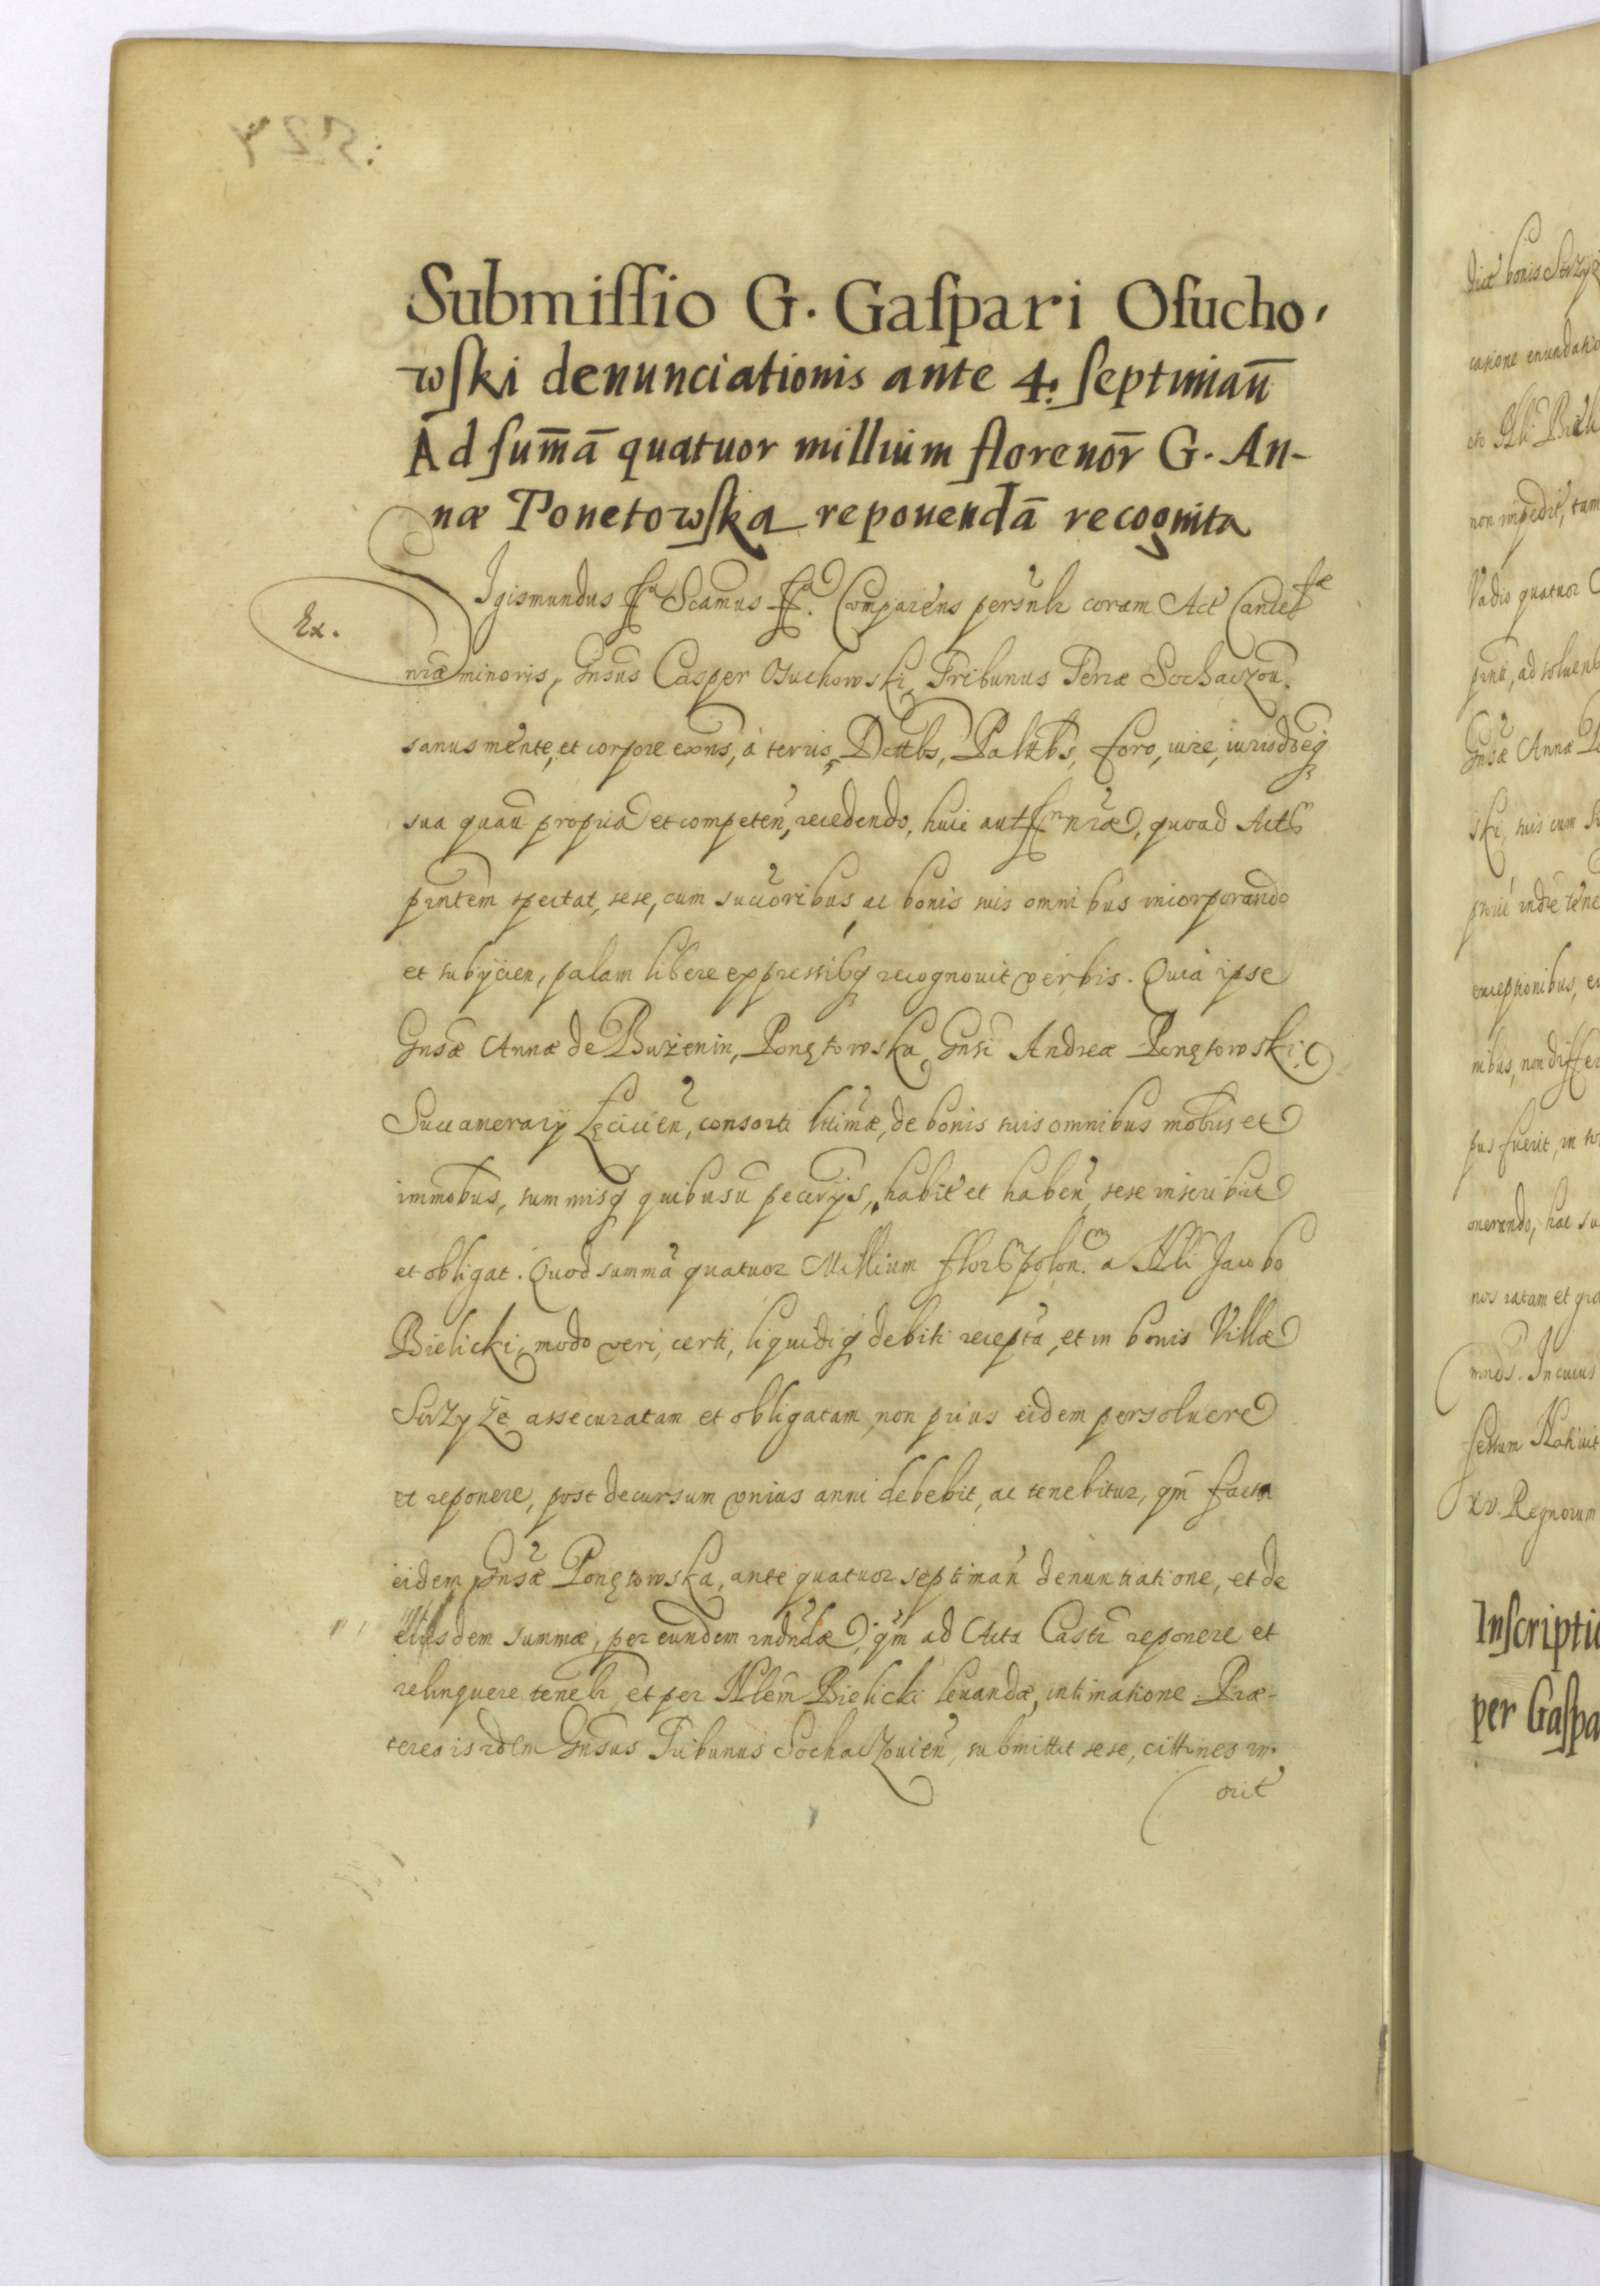 Submissio G. Gaspari Osucho,
wski denunciationis ante 4. septimañ
Ad sum̃ã quatuor millium florenor̃ G. An-
næ Ponetowska reponendã recognita
Ex.
Sigismundus etc. Scamus etc. Comparens persñlr coram Act Cancell
nræ minoris, Gnsus Casper Osuchowski, Tribunus Terræ Sochaczou.
sanus mente, et corpore exñs, à terris, Dcttbs, Palttbs, foro, iure, iurisdõeq
sua quau propria et competeñ, recedendo, huic aut nræ, quoad Act
pñntem spectat, sese, cum succõribus, ac bonis suis omnibus incorporando
et subÿcien, palam libere expressisq recognouit verbis. Quia ipse
Gnsæ Annæ de Bużenin, Ponętowska, Gnsi Andreæ Ponętowski
Succamerarÿ Lęcicieñ, consorti lttimæ, de bonis suis omnibus mobus et
immobus, summisq quibusũ pecurÿs, habit et habeñ sese inscribit
et obligat. Quod summã quatuor Millium flor polon. a Nli Jacobo
Bielicki, modo veri, certi, liquidiq debiti receptã, et in bonis Villæ
Strzyże assecuratam et obligatam, non prius eidem persoluere
et reponere, post decursum vnius anni debebit, ac tenebitur, qm̃ facta
eidem Gnsæ Ponętowska, ante quatuor septimañ denuntiatione, et de
eiusdem summæ, per eundem qm̃ ad Acta Castr̃ reponere et
relinquere tenebr, et per Nlem Bielicki leuandæ, intimatione. Præ-
terea is idem Gnsus Tribunus Sochaczouieñ, submittit sese,
dict bonis Strzyż
non impedit, tam
Vadio quatuor
Gnsæ Annæ
ski, suis cum
exceptionibus,
nibus, non differ
pus fuerit, in
onerando, hac su
nos ratam et gra
mnes. In cuius
festum Natiuit
xv. Regnorum
Inscriptio
per Gaspa